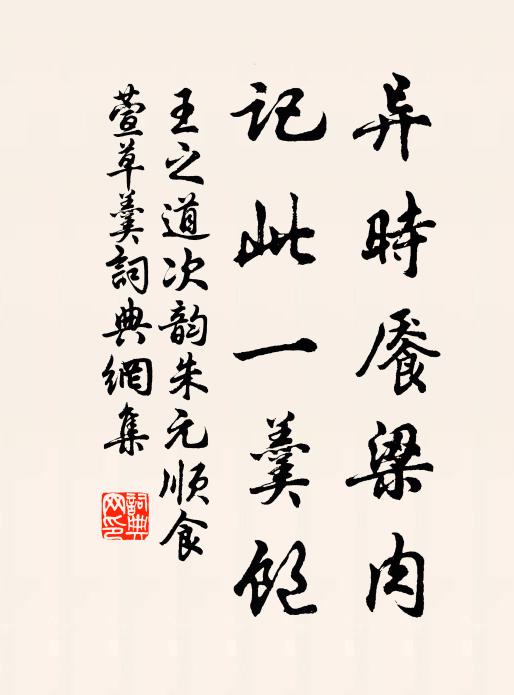 异時餍粱肉
記此一羹飽
王之道次韵朱元順食
萱草羹詞典網集
詞典网印